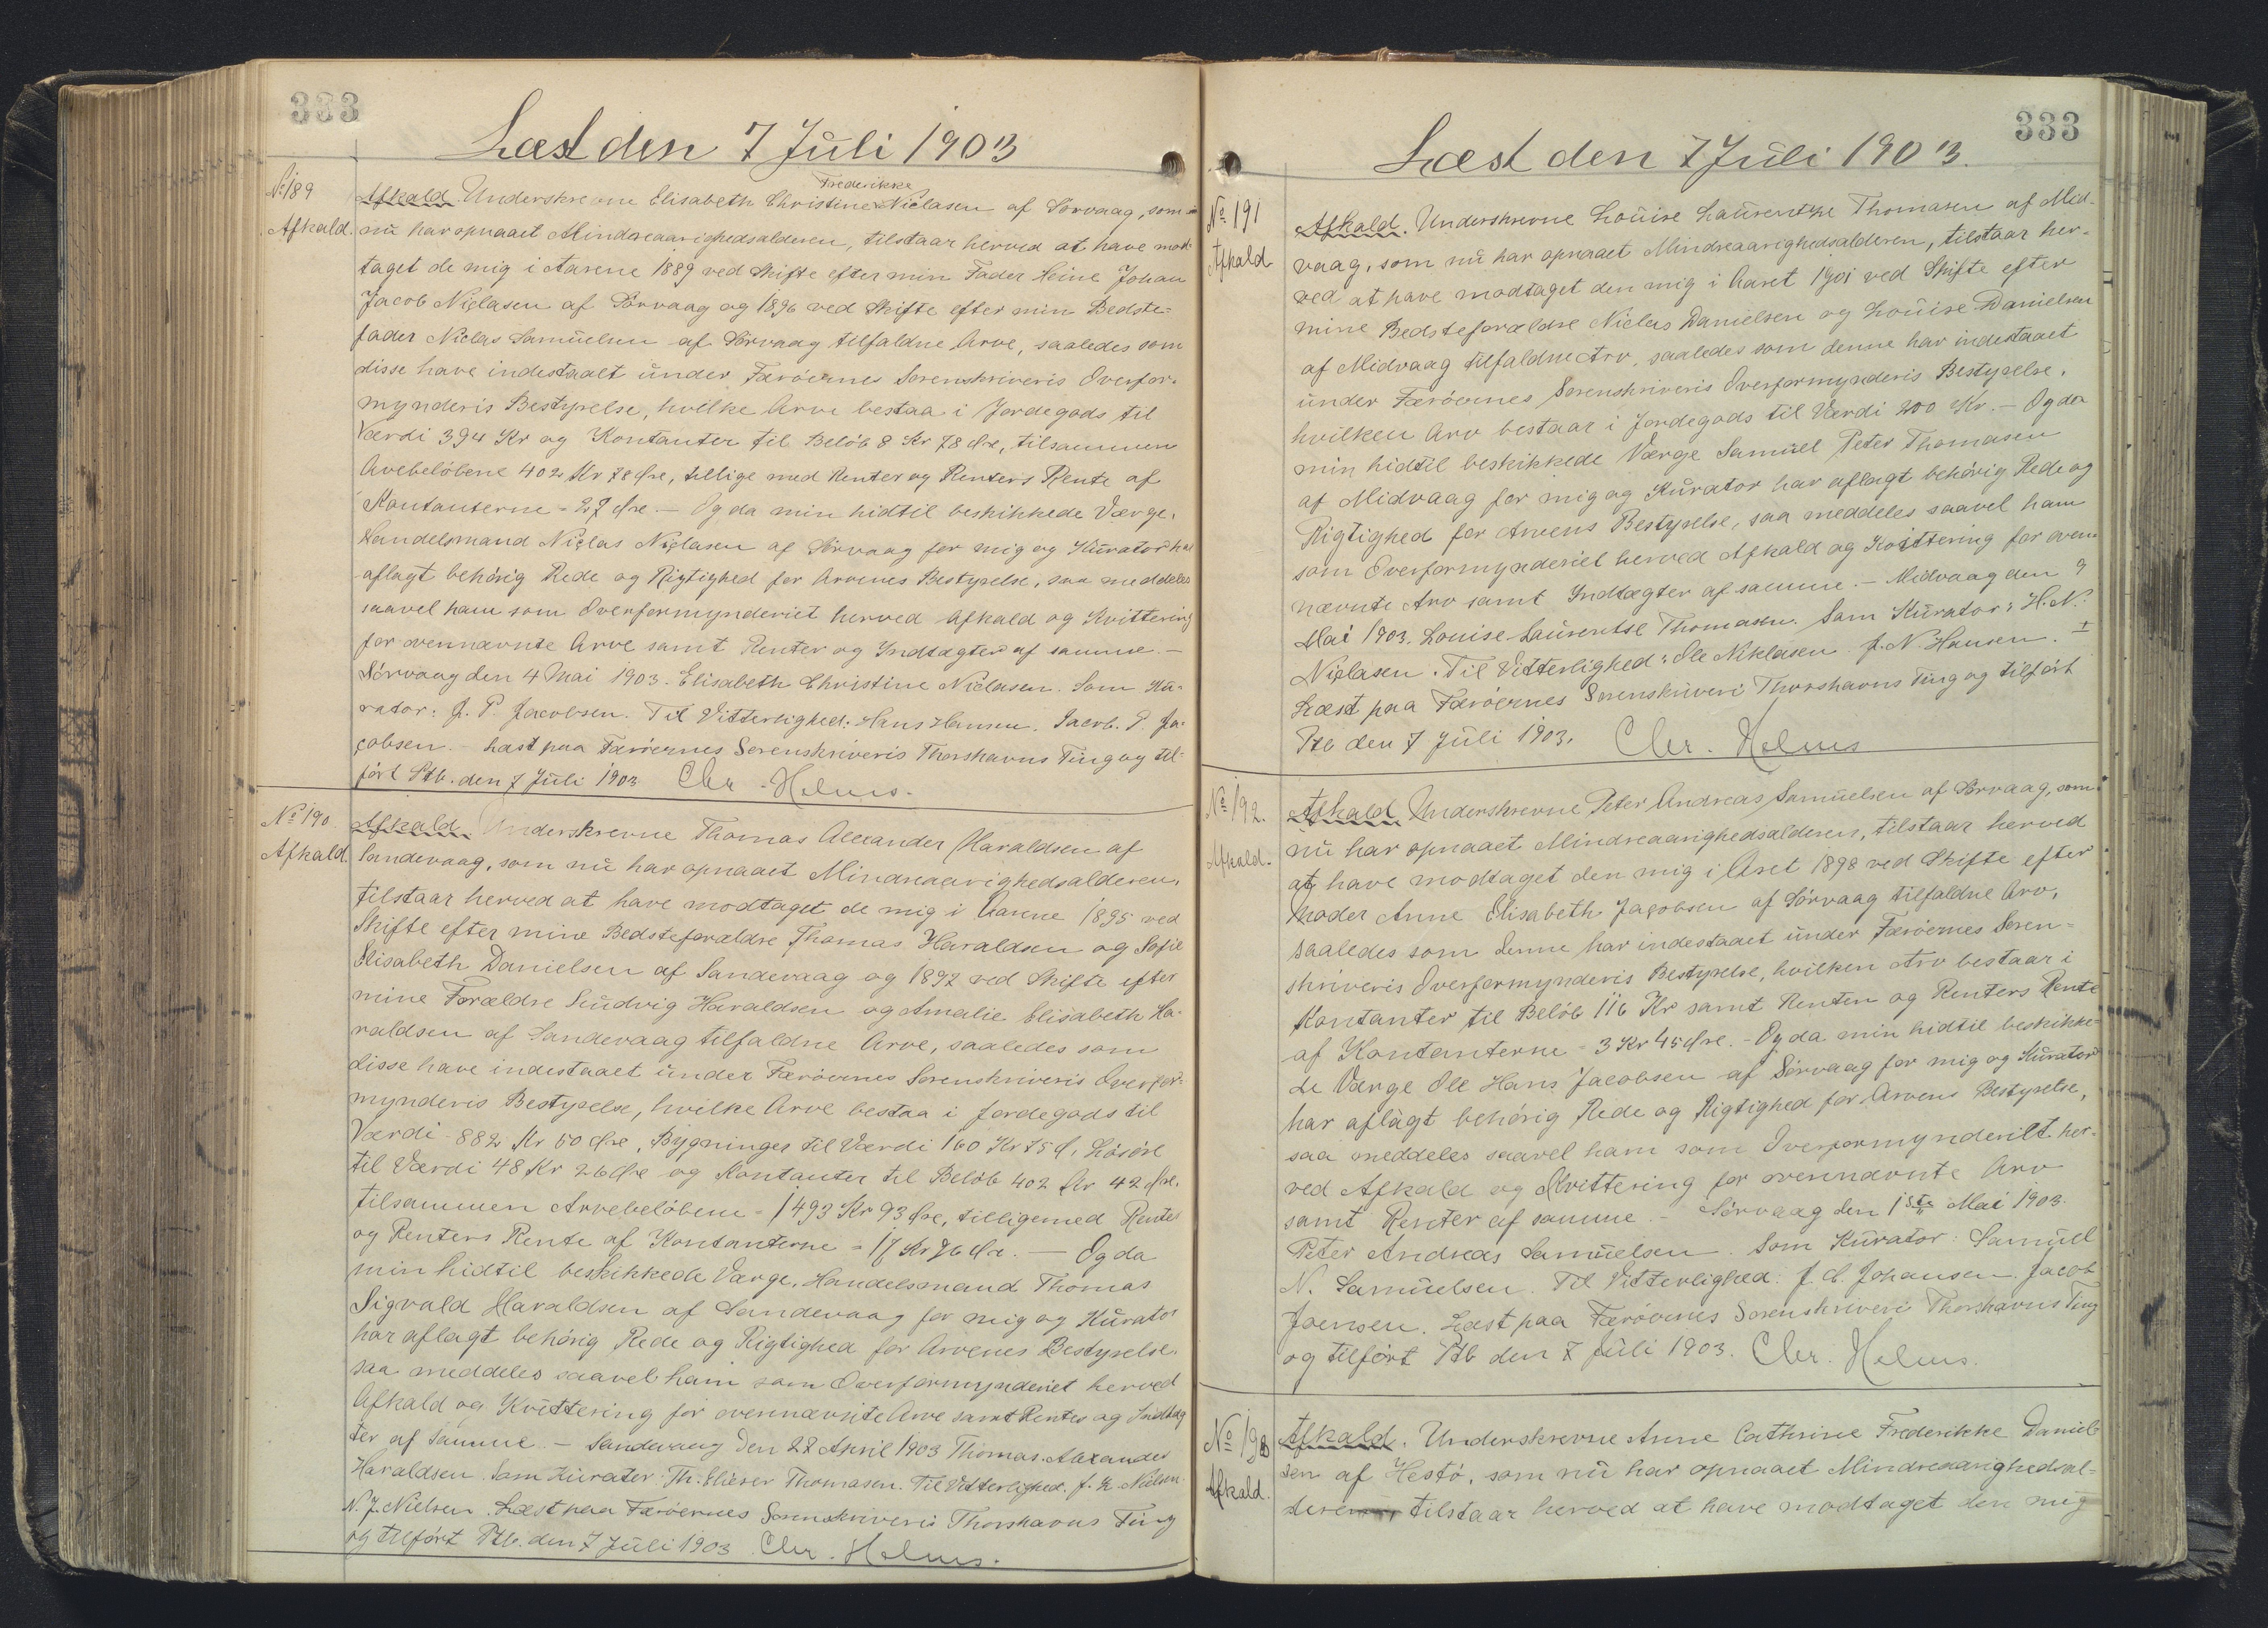 333
Læst den 7 Juli 1903
No 189
Afkald.
Afkald. Underskrevne Elisabeth Christine Frederikke Niclasen af Sörvaag, som
nu har opnaaet Mindreaarighedsalderen, tilstaar herved at have mod-
taget de mig i Aarene 1889 ved Skifte efter min Fader Heine Johan
Jacob Niclasen af Sörvaag og 1896 ved Skifte efter min Bedste-
fader Niclas Samuelsen af Sörvaag tilfaldne Arve, saaledes som
disse have indestaaet under Færöernes Sorenskriveris Overfor-
mynderis Bestyrelse, hvilke Arve bestaa i Jordegods til
Værdi 394 Kr og Kontanter til Belöb 8 Kr 78 Øre, tilsammen
Arvebelöbene 402 Kr 78 Øre, tillige med Renter og Renters Rente af
Kontanterne = 27 Øre. – Og da min hidtil beskikkede Værge,
Handelsmand Niclas Niclasen af Sörvaag for mig og Kurator har
aflagt behörig Rede og Rigtighed for Arvenes Bestyrelse, saa meddeles
saavel ham som Overformynderiet herved Afkald og Kvittering
for ovennævnte Arve samt Renter og Indtægter af samme. –
Sörvaag den 4 Mai 1903. Elisabeth Christine Niclasen. Som Ku-
rator: J. P. Jacobsen. Til Vitterlighed: Hans Hansen. Jacob. P. Ja-
cobsen. – Læst paa Færöernes Sorenskriveris Thorshavns Ting og til-
fört Ptb. den 7 Juli 1903 Chr. Helms.
No 190
Afkald.
Afkald. Underskrevne Thomas Alexander Haraldsen af
Sandevaag, som nu har opnaaet Mindreaarighedsalderen,
tilstaar herved at have modtaget de mig i Aarene 1895 ved
Skifte efter mine Bedsteforældre Thomas Haraldsen og Sofie
Elisabeth Danielsen af Sandevaag og 1897 ved Skifte efter
mine Forældre Ludvig Haraldsen og Amalie Elisabeth Ha-
raldsen af Sandevaag tilfaldne Arve, saaledes som
disse have indestaaet under Færöernes Sorenskriveris Overfor-
mynderis Bestyrelse, hvilke Arve bestaa i Jordegods til
Værdi 882 Kr 50 Øre, Bygninger til Værdi 160 Kr 75 Ø, Lösöre
til Værdi 48 Kr 26 Øre og Kontanter til Belöb 402 Kr 42 Øre,
tilsammen Arvebelöbene = 1493 Kr 93 Øre, tilligemed Renter
og Renters Rente af Kontanterne = 17 Kr 76 Øre. – Og da
min hidtil beskikkede Værge, Handelsmand Thomas
Sigvald Haraldsen af Sandevaag for mig og Kurator
har aflagt behörig Rede og Rigtighed for Arvenes Bestyrelse,
saa meddeles saavel ham som Overformynderiet herved
Afkald og Kvittering for ovennævnte Arve samt Renter og Indtæg
ter af samme. – Sandevaag den 28 April 1903 Thomas Alexander
Haraldsen. Som Kurator: Th. Elieser Thomasen. Til Vitterlighed. J. Nielsen
N. J. Nielsen. Læst paa Færöernes Sorenskriveris Thorshavns Ting
og tilfört Ptb. den 7 Juli 1903 Chr. Helms.
333
Læst den 7 Juli 1903.
No 191
Afkald
Afkald. Underskrevne Louise Laurentse Thomasen af Mid-
vaag, som nu har opnaaet Mindreaarighedsalderen, tilstaar her-
ved at have modtaget den mig i Aaret 1901 ved Skifte efter
mine Bedsteforældre Niclas Danielsen og Louise Danielsen
af Midvaag tilfaldne Arv, saaledes som denne har indestaaet
under Færöernes Sorenskriveris Overformynderis Bestyrelse,
hvilken Arv bestaar i Jordegods til Værdi 200 Kr. – Og da
min hidtil beskikkede Værge Samuel Peter Thomasen
af Midvaag for mig og Kurator har aflagt behörig Rede og
Rigtighed for Arvens Bestyrelse, saa meddeles saavel ham
som Overformynderiet herved Afkald og Kvittering for oven
nævnte Arv samt Indtægter af samme. – Midvaag den 9
Mai 1903. Louise Laurentse Thomasen. Som Kurator: H. N.
Niclasen. Til Vitterlighed: Ole Niklasen J. N. Hansen.
Læst paa Færöernes Sorenskriveri Thorshavns Ting og tilfört
Ptb den 7 Juli 1903. Chr. Helms
No 192.
Afkald.
Afkald. Underskrevne Peter Andreas Samuelsen af Sörvaag, som
nu har opnaaet Mindreaarighedsalderen, tilstaar herved
at have modtaget den mig i Aret 1898 ved Skifte efter
Moder Anne Elisabeth Jacobsen af Sörvaag tilfaldne Arv,
saaledes som denne har indestaaet under Færöernes Soren-
skriveris Overformynderis Bestyrelse, hvilken Arv bestaar i
Kontanter til Belöb 116 Kr samt Renten og Renters Rente
af Kontanterne = 3 Kr 45 Øre. – Og da min hidtil beskikke-
de Værge Ole Hans Jacobsen af Sörvaag for mig og Kurator
har aflagt behörig Rede og Rigtighed for Arvens Bestyrelse,
saa meddeles saavel ham som Overformynderiet her-
ved Afkald og Kvittering for ovennævnte Arv
samt Renter af samme. – Sörvaag den 1ste Mai 1903.
Peter Andreas Samuelsen. Som Kurator: Samuel
N. Samuelsen. Til Vitterlighed: J. C. Johansen. Jacob
Joensen. Læst paa Færöernes Sorenskriveri Thorshavns Ting
og tilfört Ptb den 7 Juli 1903. Chr. Helms.
No 193
Afkald.
Afkald. Underskrevne Anne Cathrine Frederikke Daniel-
sen af Hestö, som nu har opnaaet Mindreaarighedsal-
deren, tilstaar herved at have modtaget den mig